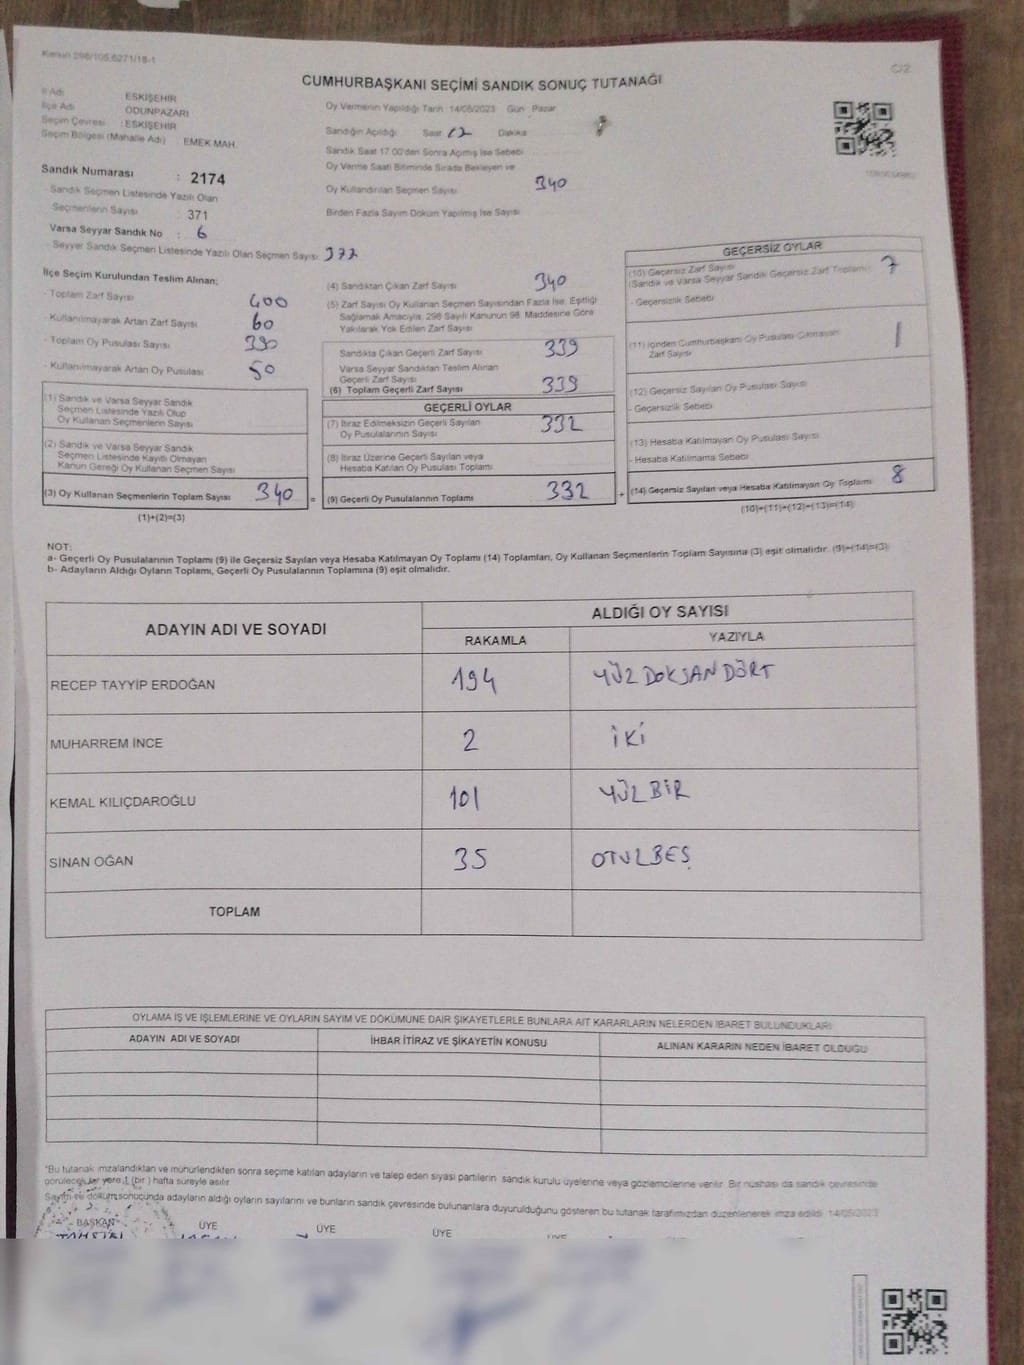 Kanun 298/105,6271/18-1
C/2
CUMHURBAŞKANI SEÇİMİ SANDIK SONUÇ TUTANAĞI
İl Adı ESKİŞEHİR
İlçe Adı ODUNPAZARI
Seçim Çevresi : ESKİŞEHİR
Seçim Bölgesi (Mahalle Adı) EMEK MAH.
Oy Vermenin Yapıldığı Tarih 14/05/2023 Gün Pazar
Sandığın Açıldığı Saat 17 Dakika
Sandık Saat 17.00'den Sonra Açımış İse Sebebi
Oy Verme Saati Bitiminde Sırada Bekleyen ve
Oy Kullandırılan Seçmen Sayısı 340
Birden Fazla Sayım Döküm Yapılmış İse Sayısı
Sandık Numarası : 2174
- Sandık Seçmen Listesinde Yazılı Olan
Seçmenlerin Sayısı : 371
Varsa Seyyar Sandık No : 6
- Seyyar Sandık Seçmen Listesinde Yazılı Olan Seçmen Sayısı: 377
İlçe Seçim Kurulundan Teslim Alınan;
- Toplam Zarf Sayısı 400
- Kullanılmayarak Artan Zarf Sayısı 60
- Toplam Oy Pusulası Sayısı 390
- Kullanılmayarak Artan Oy Pusulası 50
(1) Sandık ve Varsa Seyyar Sandık
Seçmen Listesinde Yazılı Olup
Oy Kullanan Seçmenlerin Sayısı
(2) Sandık ve Varsa Seyyar Sandık
Seçmen Listesinde Kayıtlı Olmayan
Kanun Gereği Oy Kullanan Seçmen Sayısı
(3) Oy Kullanan Seçmenlerin Toplam Sayısı 340 =
(1)+(2)=(3)
(4) Sandıktan Çıkan Zarf Sayısı 340
(5) Zarf Sayısı Oy Kullanan Seçmen Sayısından Fazla İse, Eşitliği
Sağlamak Amacıyla, 298 Sayılı Kanunun 98. Maddesine Göre
Yakılarak Yok Edilen Zarf Sayısı
Sandıkta Çıkan Geçerli Zarf Sayısı 339
Varsa Seyyar Sandıktan Teslim Alınan
Geçerli Zarf Sayısı
(6) Toplam Geçerli Zarf Sayısı 339
GEÇERLİ OYLAR
(7) İtiraz Edilmeksizin Geçerli Sayılan
Oy Pusulalarının Sayısı 332
(8) İtiraz Üzerine Geçerli Sayılan veya
Hesaba Katılan Oy Pusulası Toplamı
(9) Geçerli Oy Pusulalarının Toplamı 332 +
GEÇERSİZ OYLAR
(10) Geçersiz Zarf Sayısı
(Sandık ve Varsa Seyyar Sandık Geçersiz Zarf Toplamı) 7
- Geçersizlik Sebebi
(11) İçinden Cumhurbaşkanı Oy Pusulası Çıkmayan
Zarf Sayısı 1
(12) Geçersiz Sayılan Oy Pusulası Sayısı
- Geçersizlik Sebebi
(13) Hesaba Katılmayan Oy Pusulası Sayısı
- Hesaba Katılmama Sebebi
(14) Geçersiz Sayılan veya Hesaba Katılmayan Oy Toplamı 8
(10)+(11)+(12)+(13)=(14)
NOT:
a- Geçerli Oy Pusulalarının Toplamı (9) ile Geçersiz Sayılan veya Hesaba Katılmayan Oy Toplamı (14) Toplamları, Oy Kullanan Seçmenlerin Toplam Sayısına (3) eşit olmalıdır. (9)+(14)=(3)
b- Adayların Aldığı Oyların Toplamı, Geçerli Oy Pusulalarının Toplamına (9) eşit olmalıdır.
ADAYIN ADI VE SOYADI
ALDIĞI OY SAYISI
RAKAMLA YAZIYLA
RECEP TAYYİP ERDOĞAN 194 YÜZ DOKSAN DÖRT
MUHARREM İNCE 2 İKİ
KEMAL KILIÇDAROĞLU 101 YÜZ BİR
SİNAN OĞAN 35 OTUZ BEŞ
TOPLAM
OYLAMA İŞ VE İŞLEMLERİNE VE OYLARIN SAYIM VE DÖKÜMÜNE DAİR ŞİKAYETLERLE BUNLARA AİT KARARLARIN NELERDEN İBARET BULUNDUKLARI
ADAYIN ADI VE SOYADI İHBAR İTİRAZ VE ŞİKAYETİN KONUSU ALINAN KARARIN NEDEN İBARET OLDUĞU
*Bu tutanak imzalandıktan ve mühürlendikten sonra seçime katılan adayların ve talep eden siyasi partilerin sandık kurulu üyelerine veya gözlemcilerine verilir. Bir nüshası da sandık çevresinde
görülecek bir yere 1 (bir) hafta süreyle asılır.
Sayım ve döküm sonucunda adayların aldığı oyların sayılarını ve bunların sandık çevresinde bulunanlara duyurulduğunu gösteren bu tutanak tarafımızdan düzenlenerek imza edildi. 14/05/2023
BAŞKAN ÜYE ÜYE ÜYE ÜYE